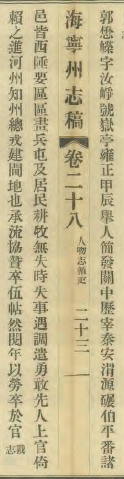 郭懋𡫏字汝崢號嶽亭雍正甲辰舉人簡發關中歷宰秦安渭源碾伯平番諸
海寧州志稿 卷二十八 人物志循吏 二十三
邑皆西陲要區區畫兵屯及居民耕牧無失時失事遇調遣勇敢先人上官倚
賴之遷河州知州總戎建閫地也承流協贊卒伍帖然閱年以勞卒於官 戰志